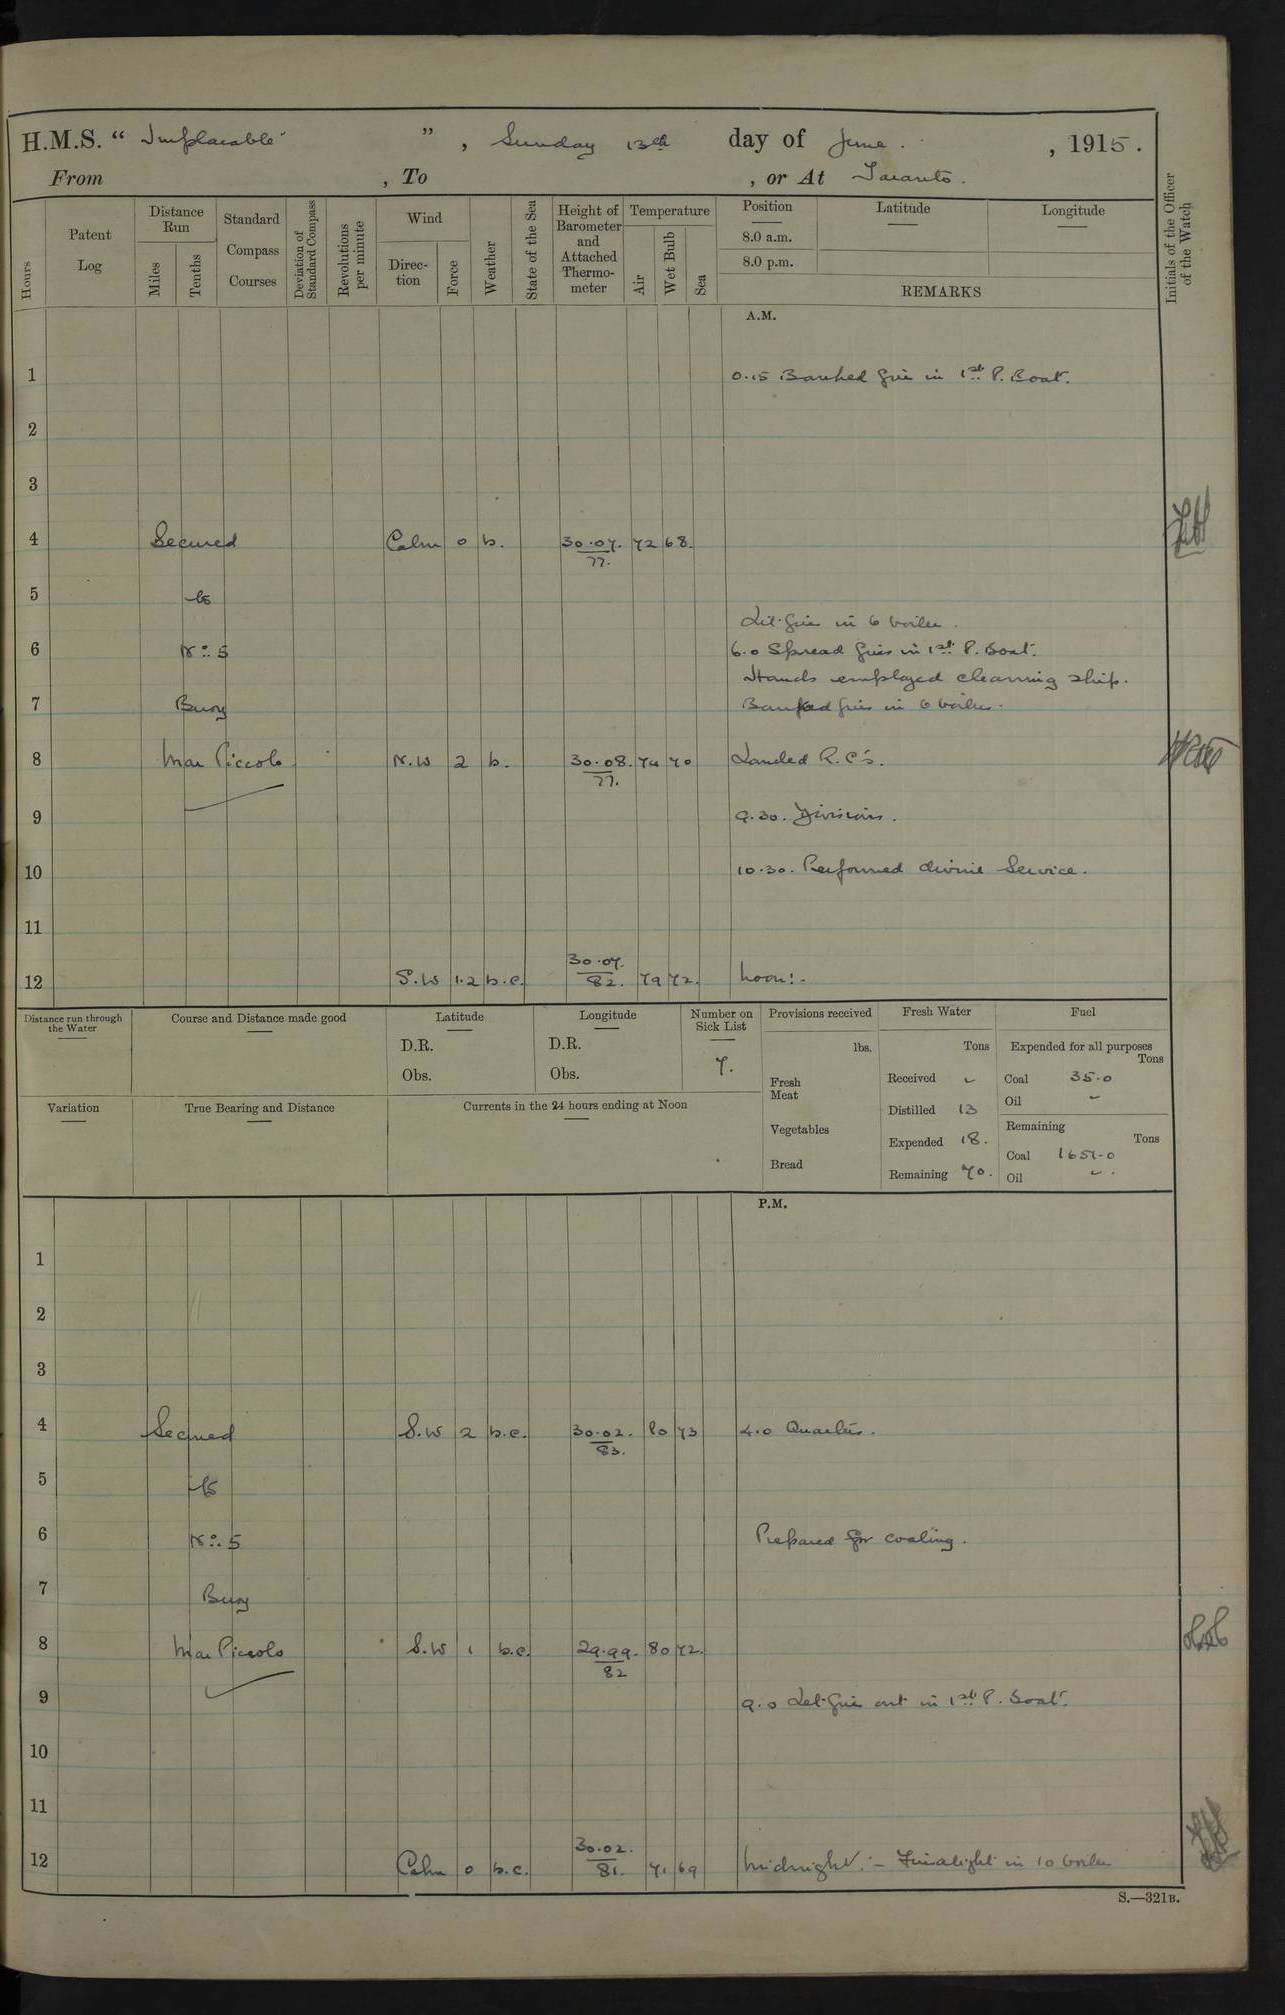 H.M.S. “ Implacable ”, Sunday 13th day of June. , 1915.
From , To , or At Taranto.
Hours
Patent Log
Distance Run
Miles
Tenths
Standard Compass Courses
Deviation of Standard Compass
Revolutions per minute
Wind
Direction
Force
Weather
State of the Sea
Height of Barometer and Attached Thermometer
Temperature
Air
Wet Bulb
Sea
Position
8.0 a.m.
8.0 p.m.
Latitude
Longitude
REMARKS
Initials of the Officer of the Watch
A.M.
1 0.15 Banked fire in 1st P. Boat.
2
3
4 Secured Calm 0 b. 30.07. 72 68.
77.
5 to
Lit fires in 6 boiler.
6 No. 5 6.0 Spread fires in 1st P. Boat.
Hands employed cleaning ship.
7 Buoy Banked fires in 6 boiler.
8 Mar Piccolo N.W 2 b. 30.08. 74 70 Landed R.C's.
77.
9 9.30. Divisions.
10 10.30. Performed divine Service.
11
30.07.
12 S.W 1.2 b.c. 82. 79 72. Noon:-
Distance run through the Water
Course and Distance made good
Latitude
D.R.
Obs.
Longitude
D.R.
Obs.
Number on Sick List
7.
Provisions received
lbs.
Fresh Meat
Vegetables
Bread
Fresh Water
Tons
Received -
Distilled 13
Expended 18.
Remaining 70.
Fuel
Expended for all purposes
Tons
Coal 35.0
Oil -
Remaining
Tons
Coal 1651.0
Oil -.
Variation
True Bearing and Distance
Currents in the 24 hours ending at Noon
P.M.
1
2
3
4 Secured S.W 2 b.c. 30.02. 80 73 4.0 Quarters.
83.
5 to
6 No. 5 Prepared for coaling.
7 Buoy
8 Mar Piccolo S.W 1 b.c. 29.99. 80 72.
82
9 9.0 Let fires out in 1st P. boat.
10
11
30.02.
12 Calm 0 b.c. 81. 71 69 Midnight:- Fires alight in 10 boiler
S.—321B.